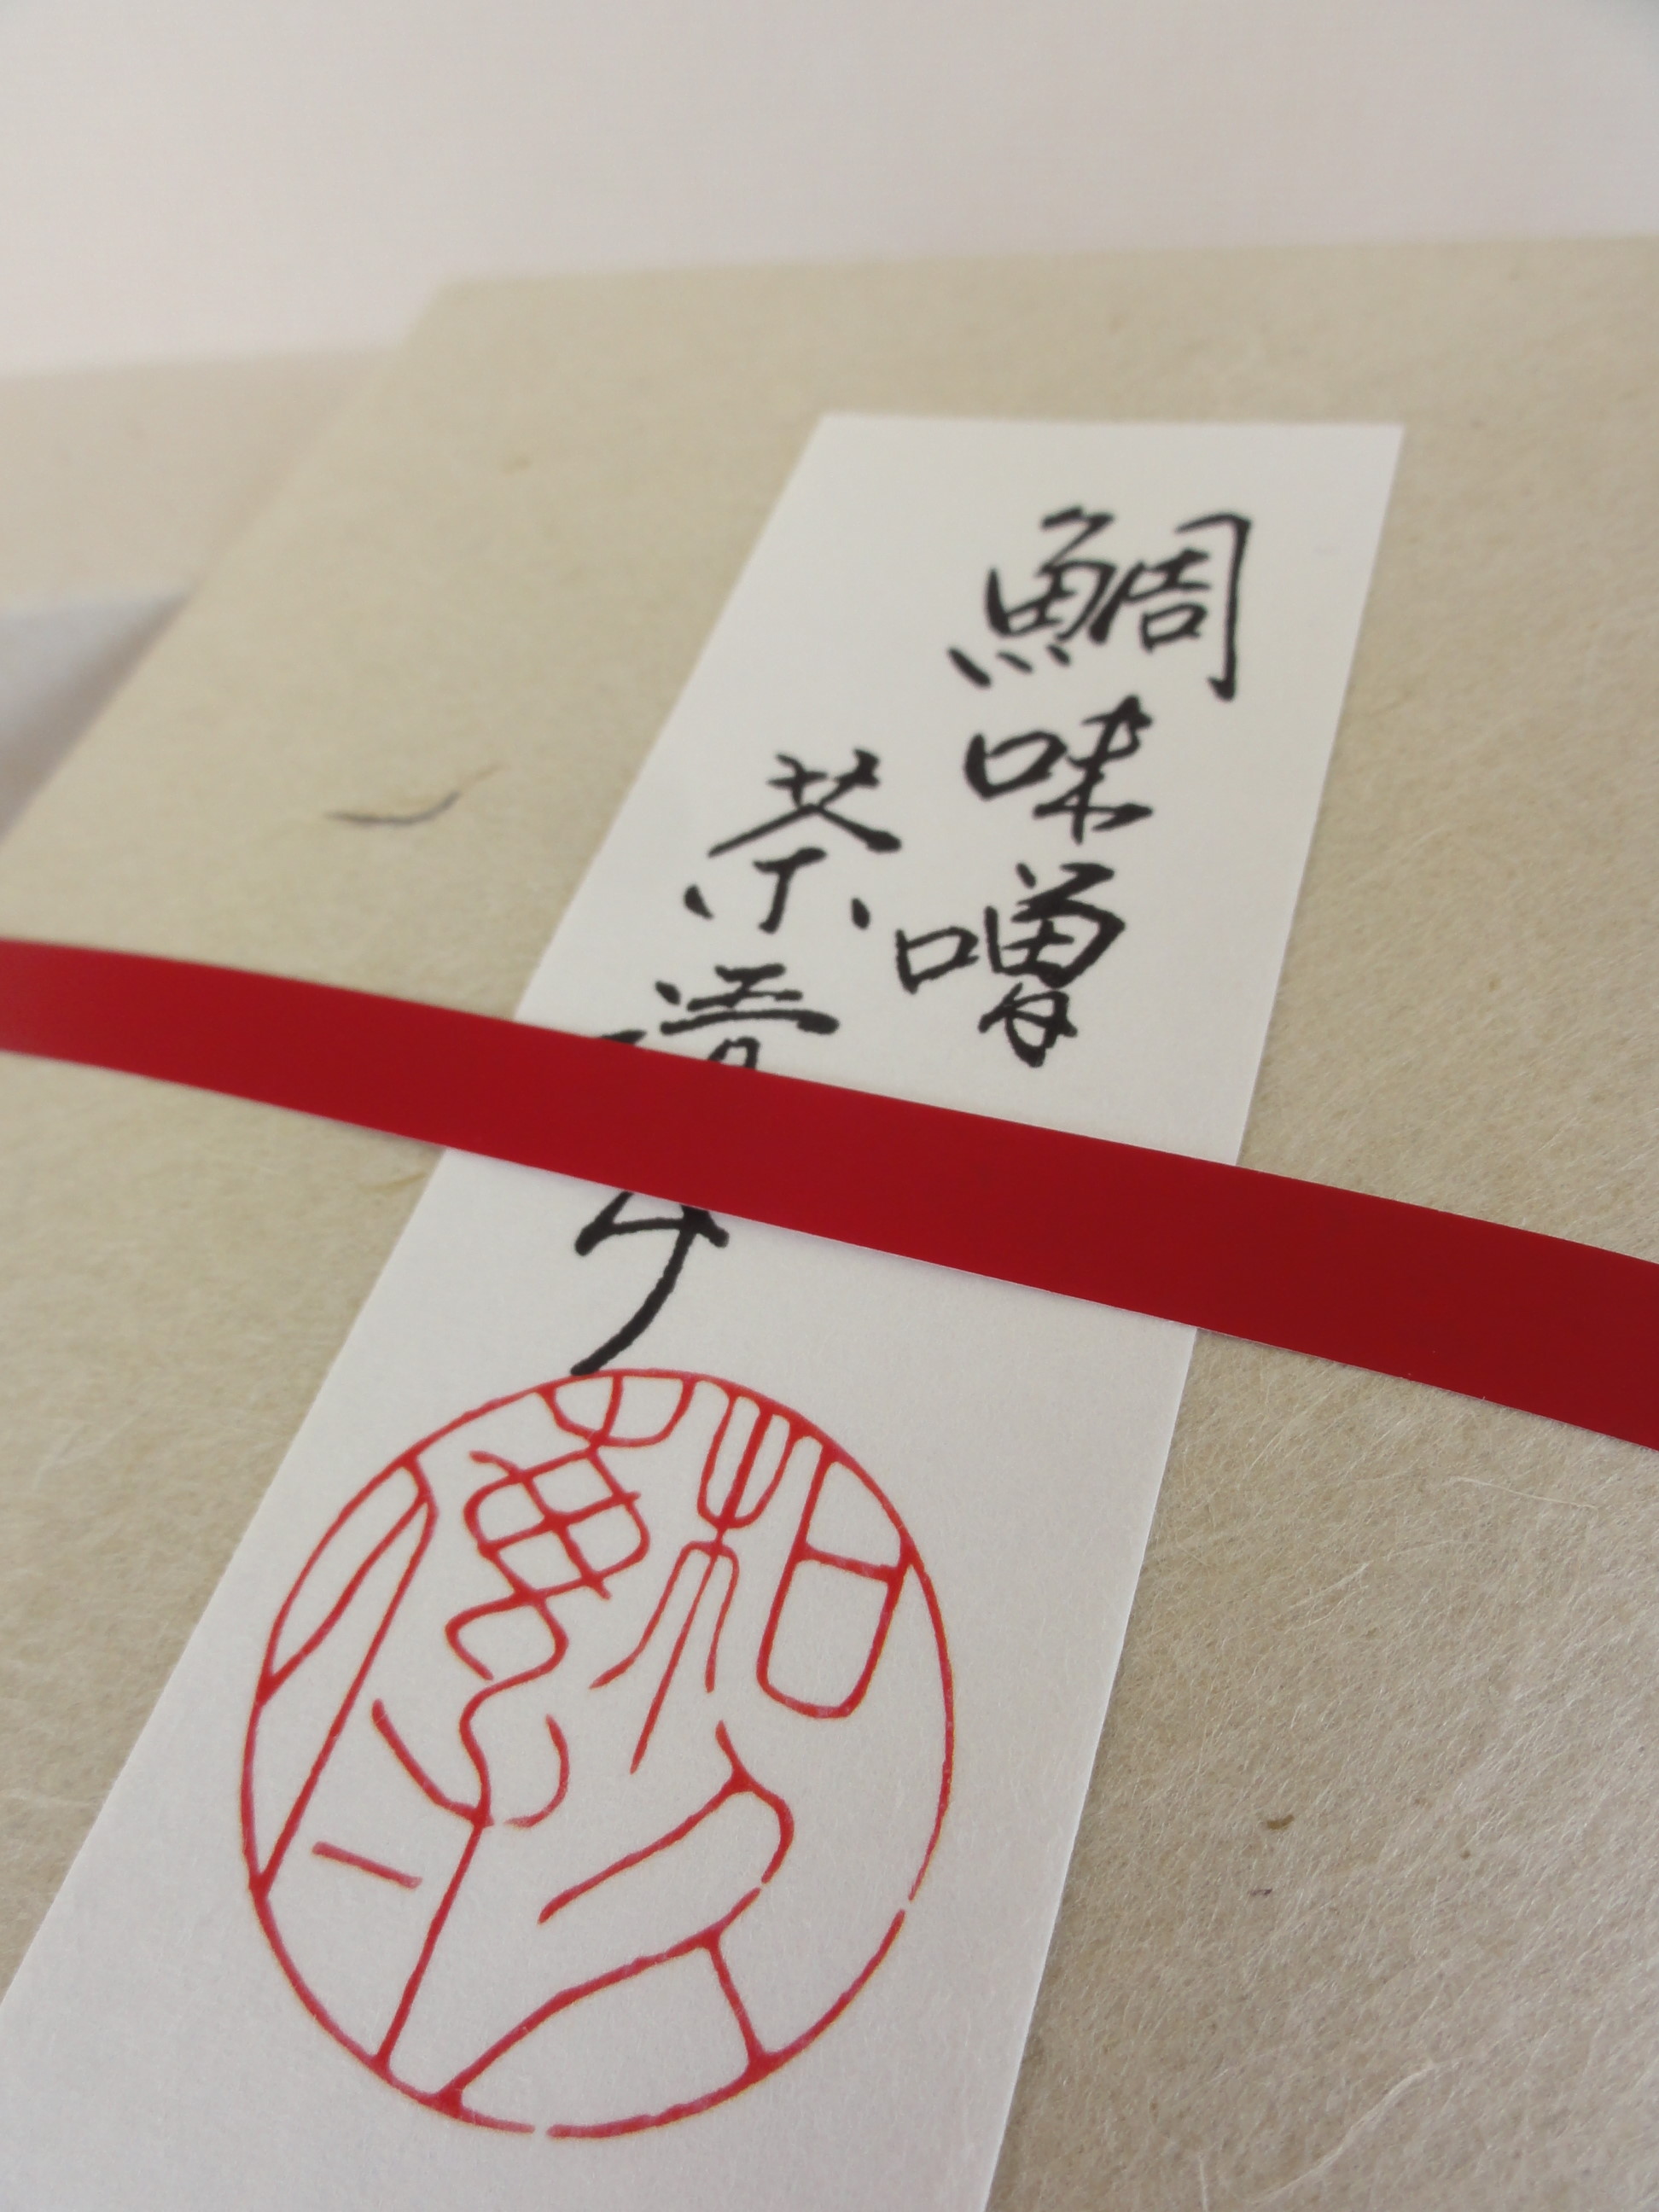 鯛味噌
茶漬け